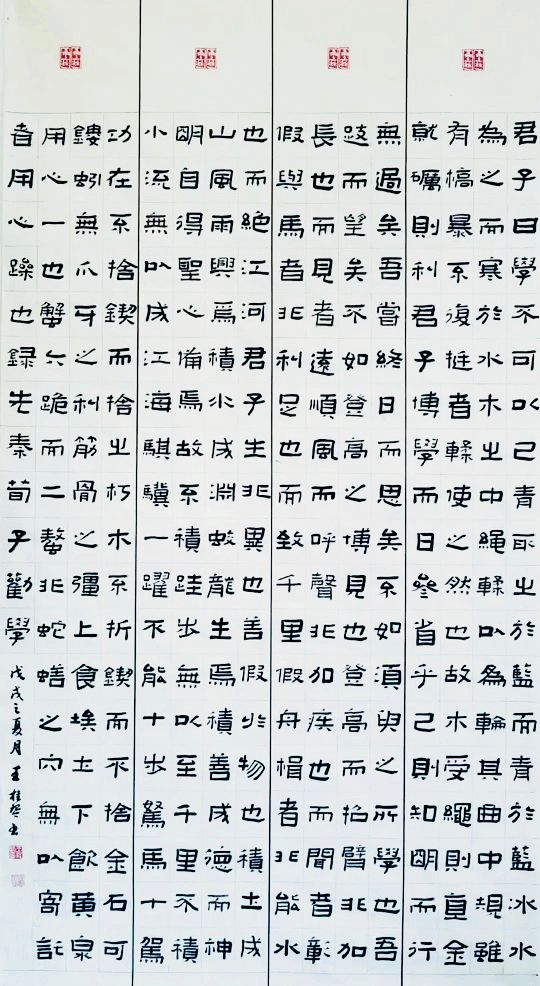 君子曰學不可以已青取之於藍而青於藍冰水
為之而寒於水木之中繩輮以為輪其曲中規雖
有槁暴不復挺者輮使之然也故木受繩則直金
就礪則利君子博學而日參省乎己則知明而行
無過矣吾嘗終日而思矣不如須臾之所學也吾
跂而望矣不如登高之博見也登高而招臂非加
長也而見者遠順風而呼聲非加疾也而聞者彰
假與馬者非利足也而致千里假舟楫者非能水
也而絕江河君子生非異也善假於物也積土成
山風雨興焉積水成淵蛟龍生焉積善成德而神
明自得聖心備焉故不積跬步無以至千里不積
小流無以成江海騏驥一躍不能十步駑馬十駕
功在不捨鍥而捨之朽木不折鍥而不捨金石可
鏤蚓無爪牙之利筋骨之彊上食埃土下飲黃泉
用心一也蟹六跪而二螯非蛇蟮之穴無以寄託
者用心躁也録先秦荀子勸學
戊戌之夏月王桂書